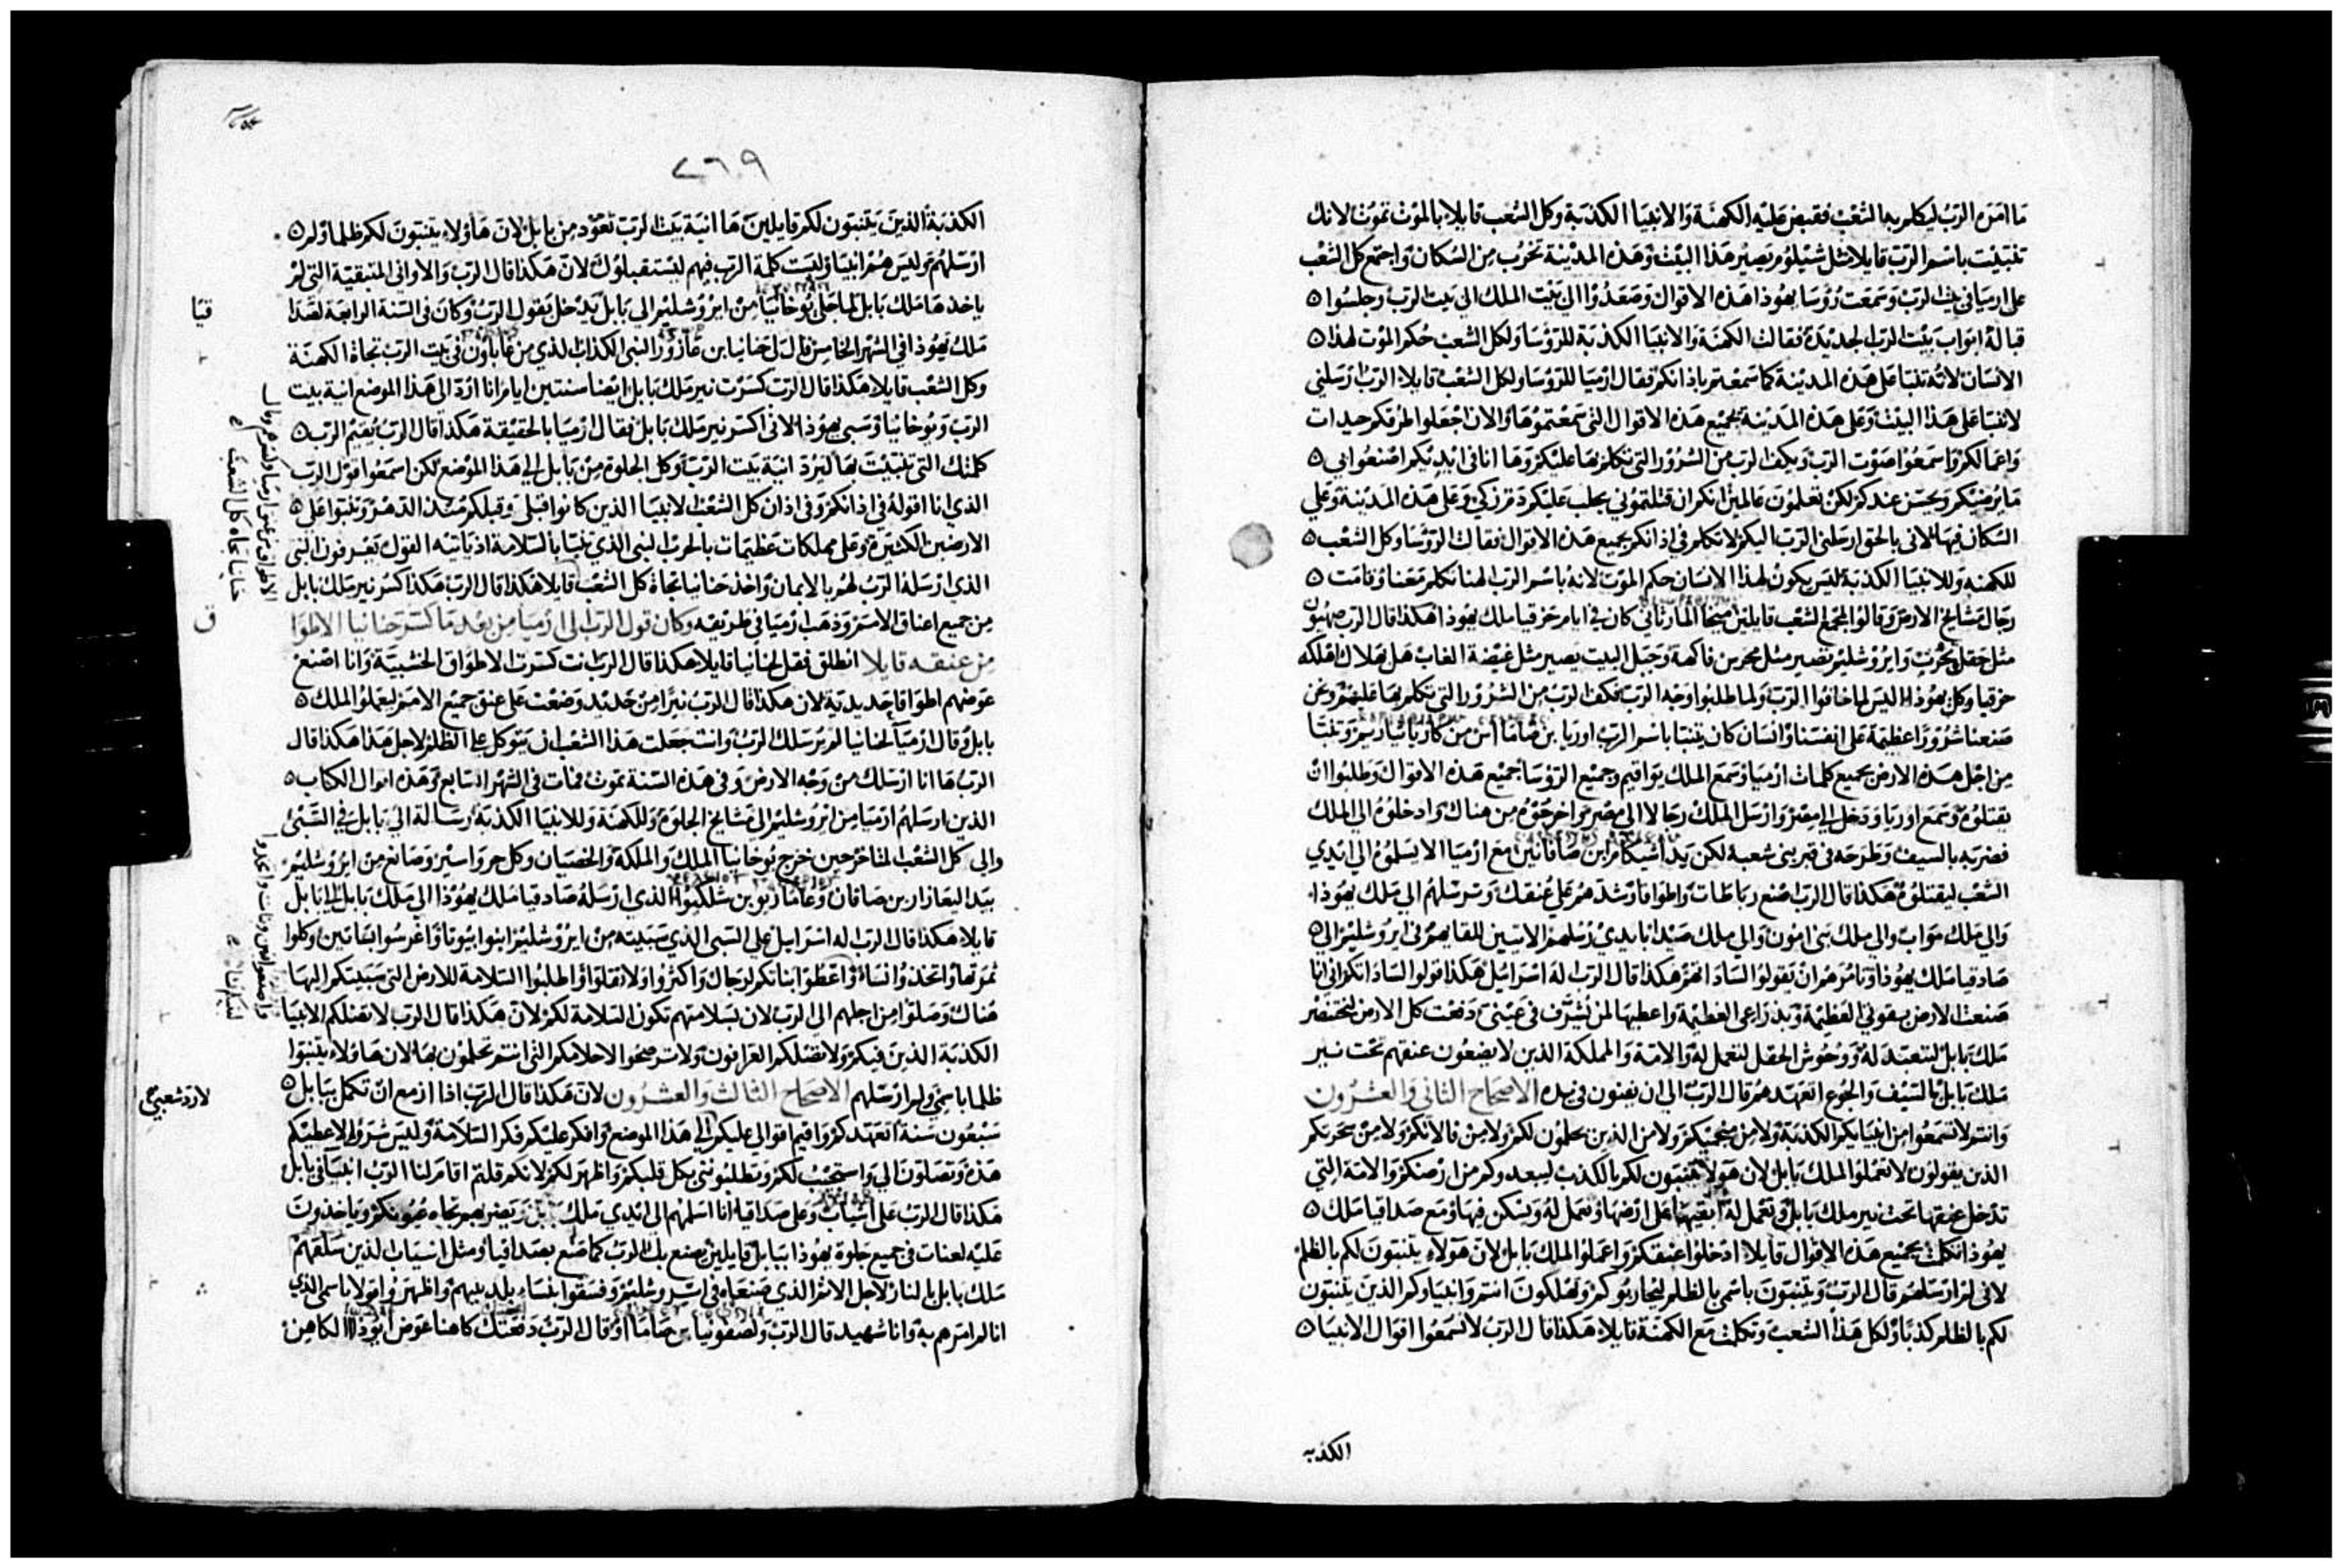 ما امره الرب ليكلم بها الشعب فقبض عليه الكهنة والانبيا الكذبة وكل الشعب قايلا بالموت تموت لانك
تنبيت باسم الرب قايلا مثل شيلوم يصير هذا البيت وهذه المدينة تخرب من السكان واجتمع كل الشعب
على ارميا في بيت الرب وسمعت رؤسا يهوذا هذه الاقوال وصعدوا الى بيت الملك الى بيت الرب وجلسوا
قبالة ابواب بيت الرب الجديدة فقالت الكهنة والانبيا الكذبة للرؤسا ولكل الشعب حكم الموت لهذا
الانسان لانه تنبا على هذه المدينة كما سمعتم باذانكم فقال ارميا للرؤسا ولكل الشعب قايلا الرب ارسلني
لاتنبا على هذا البيت وعلى هذه المدينة بجميع هذه الاقوال التي سمعتموها والان اجعلوا طرقكم جيدات
واعمالكم واسمعوا صوت الرب ويكف الرب من الشرور التي تكلم بها عليكم وها انا في ايديكم اصنعوا بي
ما يرضيكم ويحسن عندكم لكن تعلمون عالمين انكم ان قتلتموني يجلب عليكم دم زكي وعلى هذه المدينة وعلى
السكان فيها لاني بالحق ارسلني الرب اليكم لاتكلم في اذانكم بجميع هذه الاقوال فقالت الرؤسا وكل الشعب
للكهنه وللانبيا الكذبة ليس يكون لهذا الانسان حكم الموت لانه باسم الرب الهنا تكلم معنا وقامت
رجال مشايخ الارض وقالوا لجمع الشعب قايلين ميخا المارثاني كان في ايام حزقيا ملك يهوذا هكذا قال الرب صهيون
مثل حقل يحرث وايروشليم تصير مثل محرس فاكهة وجبل البيت يصير مثل غيضة الغاب هل بهلاك اهلكه
حزقيا وكل يهوذا اليس لما خافوا الرب ولما طلبوا وجه الرب فكف الرب من الشرور التي تكلم بها عليهم ونحن
صنعنا شرورا عظيمة على انفسنا وانسان كان يتنبا باسم الرب اوريا بن صاماا من كارياثياريم وتنبا
من اجل هذه الارض بجميع كلمات ارميا وسمع الملك يواقيم وجميع الرؤسا جميع هذه الاقوال وطلبوا ان
يقتلوه وسمع اوريا ودخل الى مصر وارسل الملك رجالا الى مصر واخرجوه من هناك وادخلوه الى الملك
فضربه بالسيف وطرحه في قبر بني شعبه لكن يد اشيكام ابن صافانين مع ارميا الا يسلموه الى ايدي
الشعب ليقتلوه هكذا قال الرب اصنع رباطات واطواقا وشدهم على عنقك وترسلهم الى ملك يهوذا
والى ملك مواب والى ملك بني امون والى ملك صيدا بايدي رسلهم الاتيين للقايهم في ايروشليم الى
صادقيا ملك يهوذا وتامرهم ان يقولوا لساداتهم هكذا قال الرب اله اسراييل هكذا قولوا لساداتكم اني انا
صنعت الارض بقوتي العظيمة وبذراعي العظيمة واعطيها لمن يشرف في عيني دفعت كل الارض لبختنصر
ملك بابل لتتعبد له ووحوش الحقل لتعمل له والامة والمملكة الذين لا يضعون عنقهم تحت نير
ملك بابل بالسيف والجوع اتعهدهم قال الرب الى ان يفنون في يده الاصحاح الثاني والعشرون
وانتم لا تسمعوا من انبيايكم الكذبة ولا من منجميكم ولا من الذين يحلمون لكم ولا من فالاتكم ولا من سحرتكم
الذين يقولون لا تعملوا لملك بابل لان هولا يتنبون لكم بالكذب ليبعدوكم من ارضكم والامة التي
تدخل عنقها تحت نير ملك بابل وتعمل له ابقيها على ارضها وتعمل له ويسكن فيها ومع صداقيا ملك
يهوذا تكلمت بجميع هذه الاقوال قايلا ادخلوا عنقكم واعملوا لملك بابل لان هولاء يتنبون لكم بالظلم
لاني لم ارسلهم قال الرب ويتنبون باسمي بالظلم ليحاربوكم وتهلكون انتم وانبياوكم الذين يتنبون
لكم بالظلم كذبا ولكل هذا الشعب وتكلمت مع الكهنة قايلا هكذا قال الرب لا تسمعوا اقوال الانبيا
الكذبه
٢٦٩
الكذبة الذين يتنبون لكم قايلين ها انية بيت الرب تعود من بابل لان هاولاء يتنبون لكم ظلما ولم
ارسلهم وليس هم انبيا وليست كلمة الرب فيهم ليستقبلوك لان هكذا قال الرب والاواني المتبقية التي لم
ياخذها ملك بابل لما جلى يوخانيا من ايروشليم الى بابل يدخل يقول الرب وكان في السنة الرابعة لصدا
ملك يهوذا في الشهر الخامس قال لي حنانيا بن عازور النبي الكذاب الذي من غاباون في بيت الرب تجاه الكهنة
وكل الشعب قايلا هكذا قال الرب كسرت نير ملك بابل ايضا سنتين ايام انا ارد الى هذا الموضع انية بيت
الرب ويوخانيا وسبي يهوذا لاني اكسر نير ملك بابل فقال ارميا بالحقيقة هكذا قال الرب يقيم الرب
كلمتك التي تنبيت بها ليرد انية بيت الرب وكل الجلوة من بابل الى هذا الموضع لكن اسمعوا قول الرب
الذي انا اقوله في اذانكم وفي اذان كل الشعب الانبيا الذين كانوا قبلي وقبلكم منذ الدهر وتنبوا على
الارضين الكثيرة وعلى مملكات عظيمات بالحرب النبي الذي تنبا بالسلامة اذ ياتيه القول يعرفون النبي
الذي ارسله الرب لهم بالايمان واخذ حنانيا تجاه كل الشعب قايلا هكذا قال الرب هكذا كسر نير ملك بابل
من جميع اعناق الامم وذهب ارميا في طريقه وكان قول الرب الى ارميا من بعد ما كسر حنانيا الاطواا
من عنقه قايلا انطلق فقل لحنانيا قايلا هكذا قال الرب انت كسرت الاطواق الخشبية وانا اصنع
عوضهم اطواقا حديدية لان هكذا قال الرب نيرا من حديد وضعت على عنق جميع الامم ليعملوا لملك
بابل وقال ارميا لحنانيا لم يرسلك الرب وانت جعلت هذا الشعب ان يتوكل على الظلم لاجل هذا هكذا قال
الرب ها انا ارسلك من وجه الارض وفي هذه السنة تموت فمات في الشهر السابع وهذه اقوال الكتاب
الذين ارسلهم ارميا من ايروشليم الى مشايخ الجلوة وللكهنة وللانبيا الكذبة رسالة الى بابل في السبي
والى كل الشعب لتاخر حين خرج يوخانيا الملك والملكة والخصيان وكل حر واسير وصانع من ايروشليم
بيد اليعازار بن صافان وغاماريو بن شلكيوا الذي ارسله صادقيا ملك يهوذا الى ملك بابل الى بابل
قايلا هكذا قال الرب اله اسراييل على السبي الذي سبيته من ايروشليم ابنوا بيوتا واغرسوا بساتين وكلوا
ثمرتها واتخذوا نساء واعطوا بناتكم لرجال واكثروا ولا تقلوا واطلبوا السلامة للارض التي سبيتكم اليها
هناك وصلوا من اجلهم الى الرب لان بسلامتهم تكون السلامة لكم لان هكذا قال الرب لا تضلكم الانبيا
الكذبة الذين فيكم ولا تضلكم العرافون ولا ترضخوا لاحلامكم التي انتم تحلمون بها لان هاولاء يتنبوا
ظلما باسمي ولم ارسلهم الاصحاح الثالث والعشرون لان هكذا قال الرب اذا ازمع ان تكمل ببابل
سبعون سنة اتعهدكم واقيم اقوالي عليكم الى هذا الموضع وافكر عليكم فكر السلامة وليس شرورا لاعطيكم
هذه وتصلون لي واستجيب لكم وتطلبونني بكل قلبكم واظهر لكم لانكم قلتم اقام لنا الرب انبيا في بابل
هكذا قال الرب على اشياب وعلى صداقيا انا اسلمهم الى ايدي ملك بابل ويضربهم تجاه عيونكم وياخذون
عليه لعنات في جميع جلوة يهوذا ببابل قايلين يصنع بك الرب كما صنع بصداقيا ومثل اشياب الذين سلقهم
ملك بابل بالنار لاجل الاثم الذي صنعاه في ايروشليم وفسقوا بنساء بلدييهم واظهروا قولا باسمي الذي
انا لم امرهم به وانا شهيد قال الرب ولصفونيا بن صاماا وقال الرب دفعتك كاهنا عوض ايوذاا الكاهن
قيا
ق
حنانيا تجاه كل الشعب